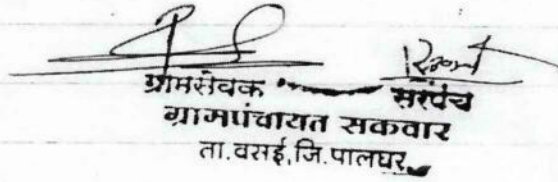 ग्रामसेवक सरपंच
ग्रामपंचायत सकवार
ता.वसई,जि.पालघर